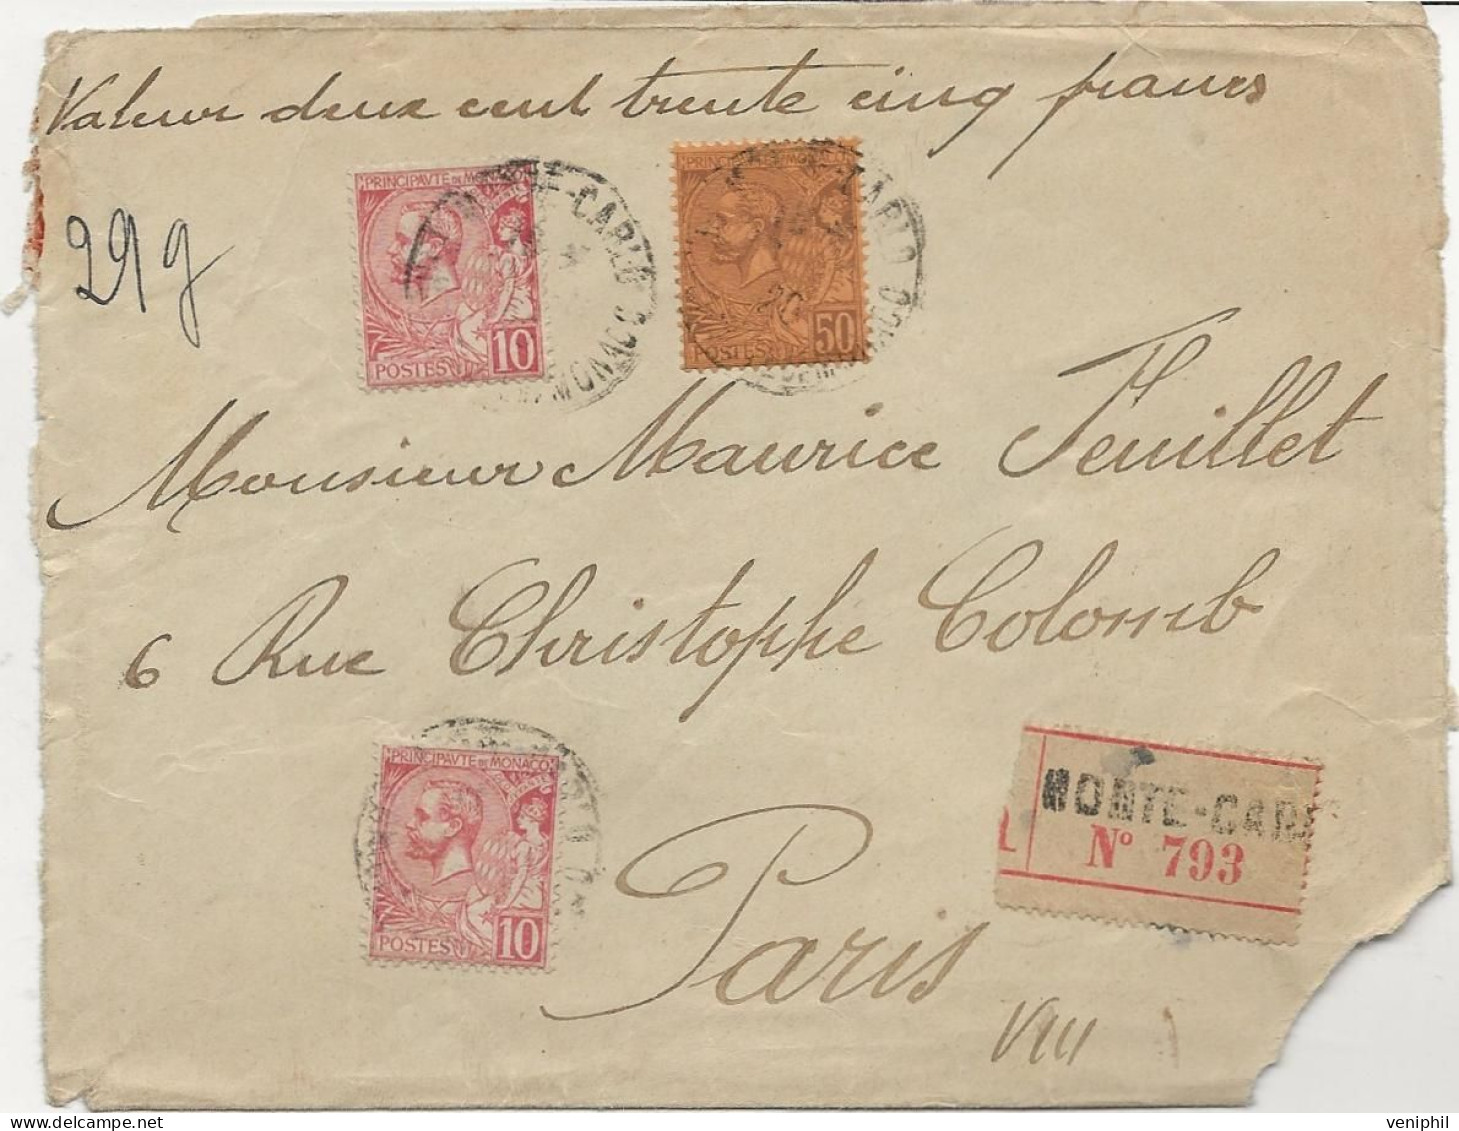 Valeur deux cent trente cinq francs
29 g
PRINCIPAVTE DE MONACO
POSTES 10
PRINCIPAVTE DE MONACO
POSTES 50
MONTE-CARLO
MONACO
CARLO
MONACO
Monsieur Maurice Feuillet
6 Rue Christophe Colomb
PRINCIPAVTE DE MONACO
POSTES 10
Paris
MONTE-CAR
N° 793
VIII
veniphil